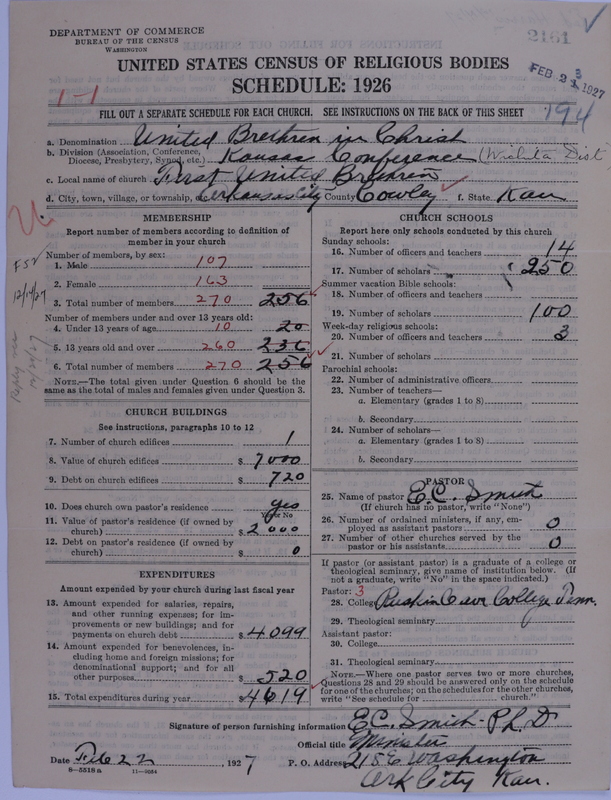 DEPARTMENT OF COMMERCE
BUREAU OF THE CENSUS
WASHINGTON
2161
FEB 23 1927
UNITED STATES CENSUS OF RELIGIOUS BODIES
SCHEDULE: 1926
1-1
194
FILL OUT A SEPARATE SCHEDULE FOR EACH CHURCH. SEE INSTRUCTIONS ON THE BACK OF THIS SHEET
a. Denomination United Brethren in Christ
b. Division (Association, Conference, Diocese, Presbytery, Synod, etc.) Kansas Conference (Wichita Dist)
c. Local name of church First United Brethren
d. City, town, village, or township, etc. Arkansas City County Cowley f. State Kan
MEMBERSHIP
Report number of members according to definition of
member in your church
Number of members, by sex:
1. Male 107
2. Female 163
3. Total number of members 270 256
Number of members under and over 13 years old:
4. Under 13 years of age 10 20
5. 13 years old and over 260 236
6. Total number of members 270 256
NOTE.—The total given under Question 6 should be the
same as the total of males and females given under Question 3.
12/14/27
CHURCH BUILDINGS
See instructions, paragraphs 10 to 12
7. Number of church edifices 1
8. Value of church edifices $ 7000
9. Debt on church edifices $ 720
10. Does church own pastor's residence yes
Yes or No
11. Value of pastor's residence (if owned by
church) $ 2000
12. Debt on pastor's residence (if owned by
church) $ 0
EXPENDITURES
Amount expended by your church during last fiscal year
13. Amount expended for salaries, repairs,
and other running expenses; for im-
provements or new buildings; and for
payments on church debt $ 4099
14. Amount expended for benevolences, in-
cluding home and foreign missions; for
denominational support; and for all
other purposes $ 520
15. Total expenditures during year $ 4619
CHURCH SCHOOLS
Report here only schools conducted by this church
Sunday schools:
16. Number of officers and teachers 14
17. Number of scholars 250
Summer vacation Bible schools:
18. Number of officers and teachers
19. Number of scholars 100
Week-day religious schools:
20. Number of officers and teachers 3
21. Number of scholars
Parochial schools:
22. Number of administrative officers
23. Number of teachers—
a. Elementary (grades 1 to 8)
b. Secondary
24. Number of scholars—
a. Elementary (grades 1 to 8)
b. Secondary
PASTOR
25. Name of pastor E.C. Smith
(If church has no pastor, write "None")
26. Number of ordained ministers, if any, em-
ployed as assistant pastors 0
27. Number of other churches served by the
pastor or his assistants 0
If pastor (or assistant pastor) is a graduate of a college or
theological seminary, give name of institution below. (If
not a graduate, write "No" in the space indicated.)
Pastor: 3
28. College Ruskin Cave College, Tenn.
29. Theological seminary
Assistant pastor:
30. College
31. Theological seminary
NOTE.—Where one pastor serves two or more churches,
Questions 28 and 29 should be answered only on the schedule
for one of the churches; on the schedules for the other churches,
write "See schedule for church."
Signature of person furnishing information E.C. Smith - Ph.D
Official title Minister
Date Feb 22, 1927 P. O. Address 215 E Washington
8—5518a 11—9034
Ark City Kan.